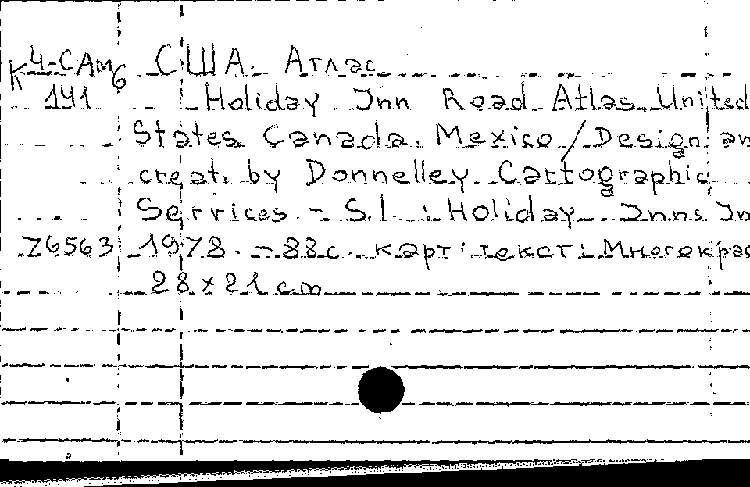 К 4-САм6 США. Атлас
141 Holiday Inn Road Atlas United
States Canada. Mexico / Design an
creat. by Donnelley Cartographic
Services. - S.l. : Holiday Inns In
Z6563 1978. - 88 с. карт; текст; Многокрас
28 x 21 cm